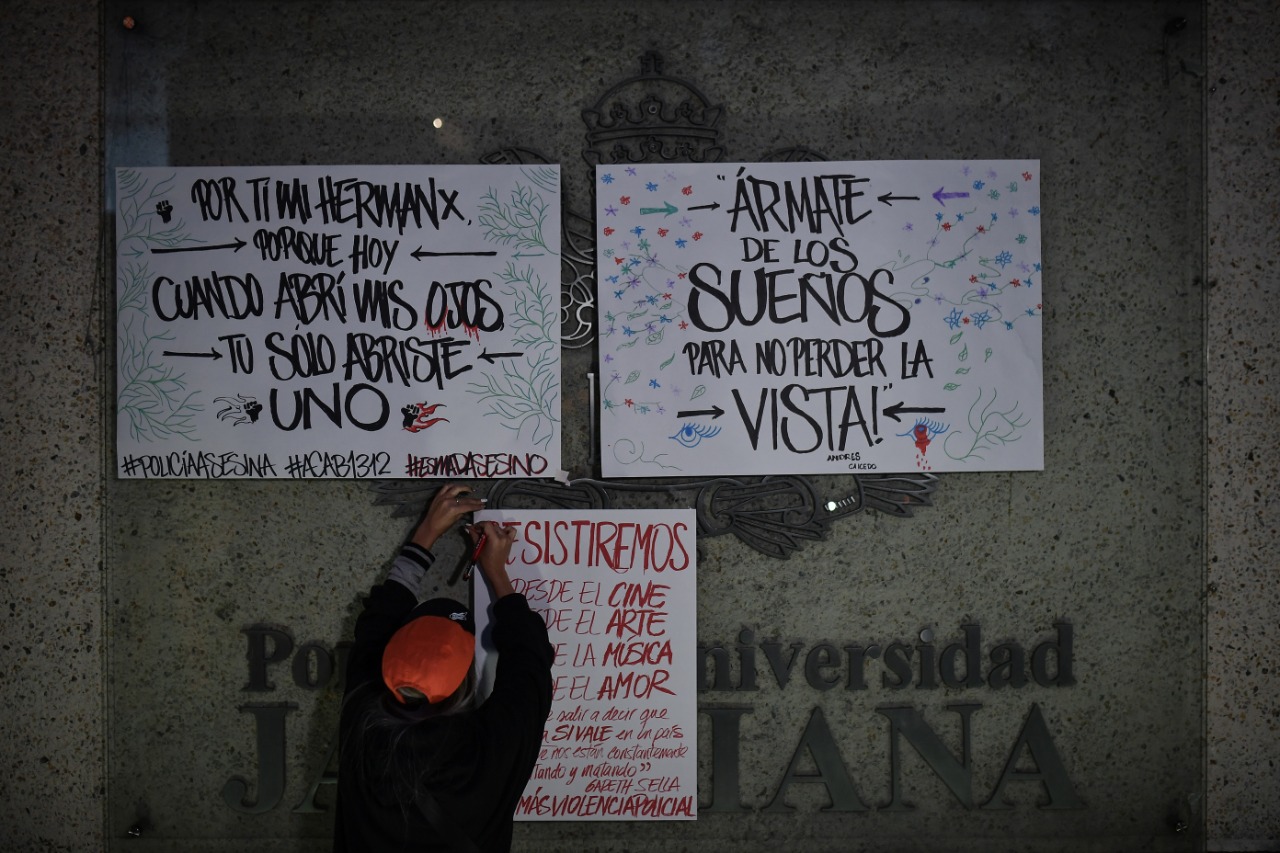 POR TI MI HERMANX,
PORQUE HOY
CUANDO ABRÍ MIS OJOS,
TU SÓLO ABRISTE
UNO
#POLICÍAASESINA #ACAB1312 #ESMADASESINO
"ÁRMATE
DE LOS
SUEÑOS
PARA NO PERDER LA
VISTA!"
ANDRES
CAICEDO
ESISTIREMOS
DESDE EL CINE
DE EL ARTE
LA MÚSICA
EL AMOR
salir a decir que
SI VALE en un país
nos están constantemente
tando y matando"
GARETH SELLA
MÁSVIOLENCIAPOLICIAL
Universidad